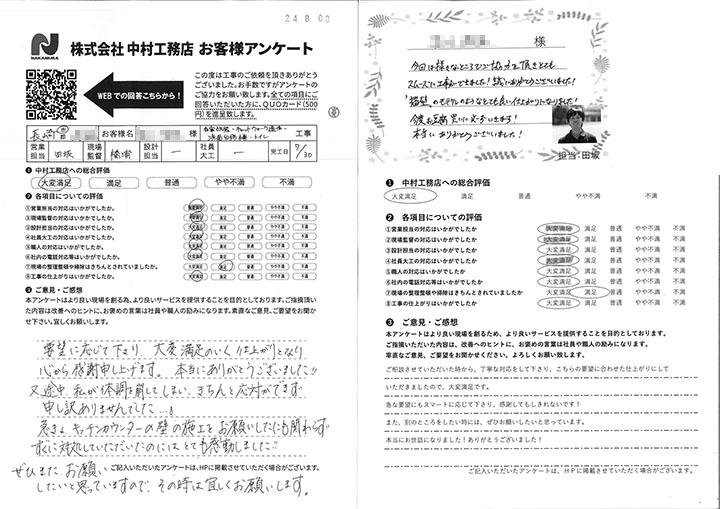 24.8.08
NAKAMURA
株式会社 中村工務店 お客様アンケート
WEBでの回答こちらから!
この度は工事のご依頼を頂きありがとう
ございました。お手数ですがアンケートの
ご協力をお願い致します。全ての項目にご
回答いただいた方に、QUOカード(500
円)を進呈致します。
お客様名
工事
営業担当 田坂 現場監督 設計担当 ー 社員大工 ー 完工日 7/30
❶ 中村工務店への総合評価
大変満足 満足 普通 やや不満 不満
❷ 各項目についての評価
①営業担当の対応はいかがでしたか。 大変満足 満足 普通 やや不満 不満
②現場監督の対応はいかがでしたか。 大変満足 満足 普通 やや不満 不満
③設計担当の対応はいかがでしたか。 大変満足 満足 普通 やや不満 不満
④社員大工の対応はいかがでしたか。 大変満足 満足 普通 やや不満 不満
⑤職人の対応はいかがでしたか。 大変満足 満足 普通 やや不満 不満
⑥社内の電話対応等はいかがでしたか。 大変満足 満足 普通 やや不満 不満
⑦現場の整理整頓や掃除はきちんとされていましたか。 大変満足 満足 普通 やや不満 不満
⑧工事の仕上がりはいかがでしたか。 大変満足 満足 普通 やや不満 不満
❸ ご意見・ご感想
本アンケートはより良い現場を創る為、より良いサービスを提供することを目的としております。ご指摘頂い
た内容は改善へのヒントに、お褒めの言葉は社員や職人の励みになります。素直なご意見、ご要望をお聞か
せ下さい。宜しくお願いします。
要望に応じて下さり 大変満足のいく仕上がりとなり
心から感謝申し上げます。本当にありがとうございました!!
又途中、私が体調を崩してしまい、きちんと応対ができず
申し訳ありませんでした...。
急きょ、キッチンカウンターの壁の施工をお願いしたにも関わらず
すぐに対処していただいたのにはとても感動しました。
ぜひまた、お願い
ご記入いただいたアンケートは、HPに掲載させていただく場合がございます。
したいと思っていますので、その時は宜しくお願いします。
様
今回は様々なところでご協力て頂きとても
スムーズに工事ができました!誠にありがとうございました!
本当にありがとうございました!
担当:田坂
❶ 中村工務店への総合評価
大変満足 満足 普通 やや不満 不満
❷ 各項目についての評価
①営業担当の対応はいかがでしたか 大変満足 満足 普通 やや不満 不満
②現場監督の対応はいかがでしたか 大変満足 満足 普通 やや不満 不満
③設計担当の対応はいかがでしたか 大変満足 満足 普通 やや不満 不満
④社員大工の対応はいかがでしたか 大変満足 満足 普通 やや不満 不満
⑤職人の対応はいかがでしたか 大変満足 満足 普通 やや不満 不満
⑥社内の電話対応はいかがでしたか 大変満足 満足 普通 やや不満 不満
⑦現場の整理整頓や掃除はきちんとされていましたか 大変満足 満足 普通 やや不満 不満
⑧工事の仕上がりはいかがでしたか 大変満足 満足 普通 やや不満 不満
❸ ご意見・ご感想
本アンケートはより良い現場を創るため、より良いサービスを提供することを目的としております。
ご指摘いただいた内容は改善へのヒントに、お褒めの言葉は社員や職人の励みになります。
率直なご意見、ご要望をお聞かせください。よろしくお願い致します。
ご相談させていただいた時から、丁寧な対応をして下さり、こちらの要望に合わせた仕上がりにして
いただきましたので、大変満足です。
急な要望にもスマートに応じて下さり、感謝してもしきれないです!
また、別のところをしたい時には、ぜひお願いしたいと思っています。
本当にお世話になりました!ありがとうございました!
ご記入いただいたアンケートは、HPに掲載させていただく場合がございます。